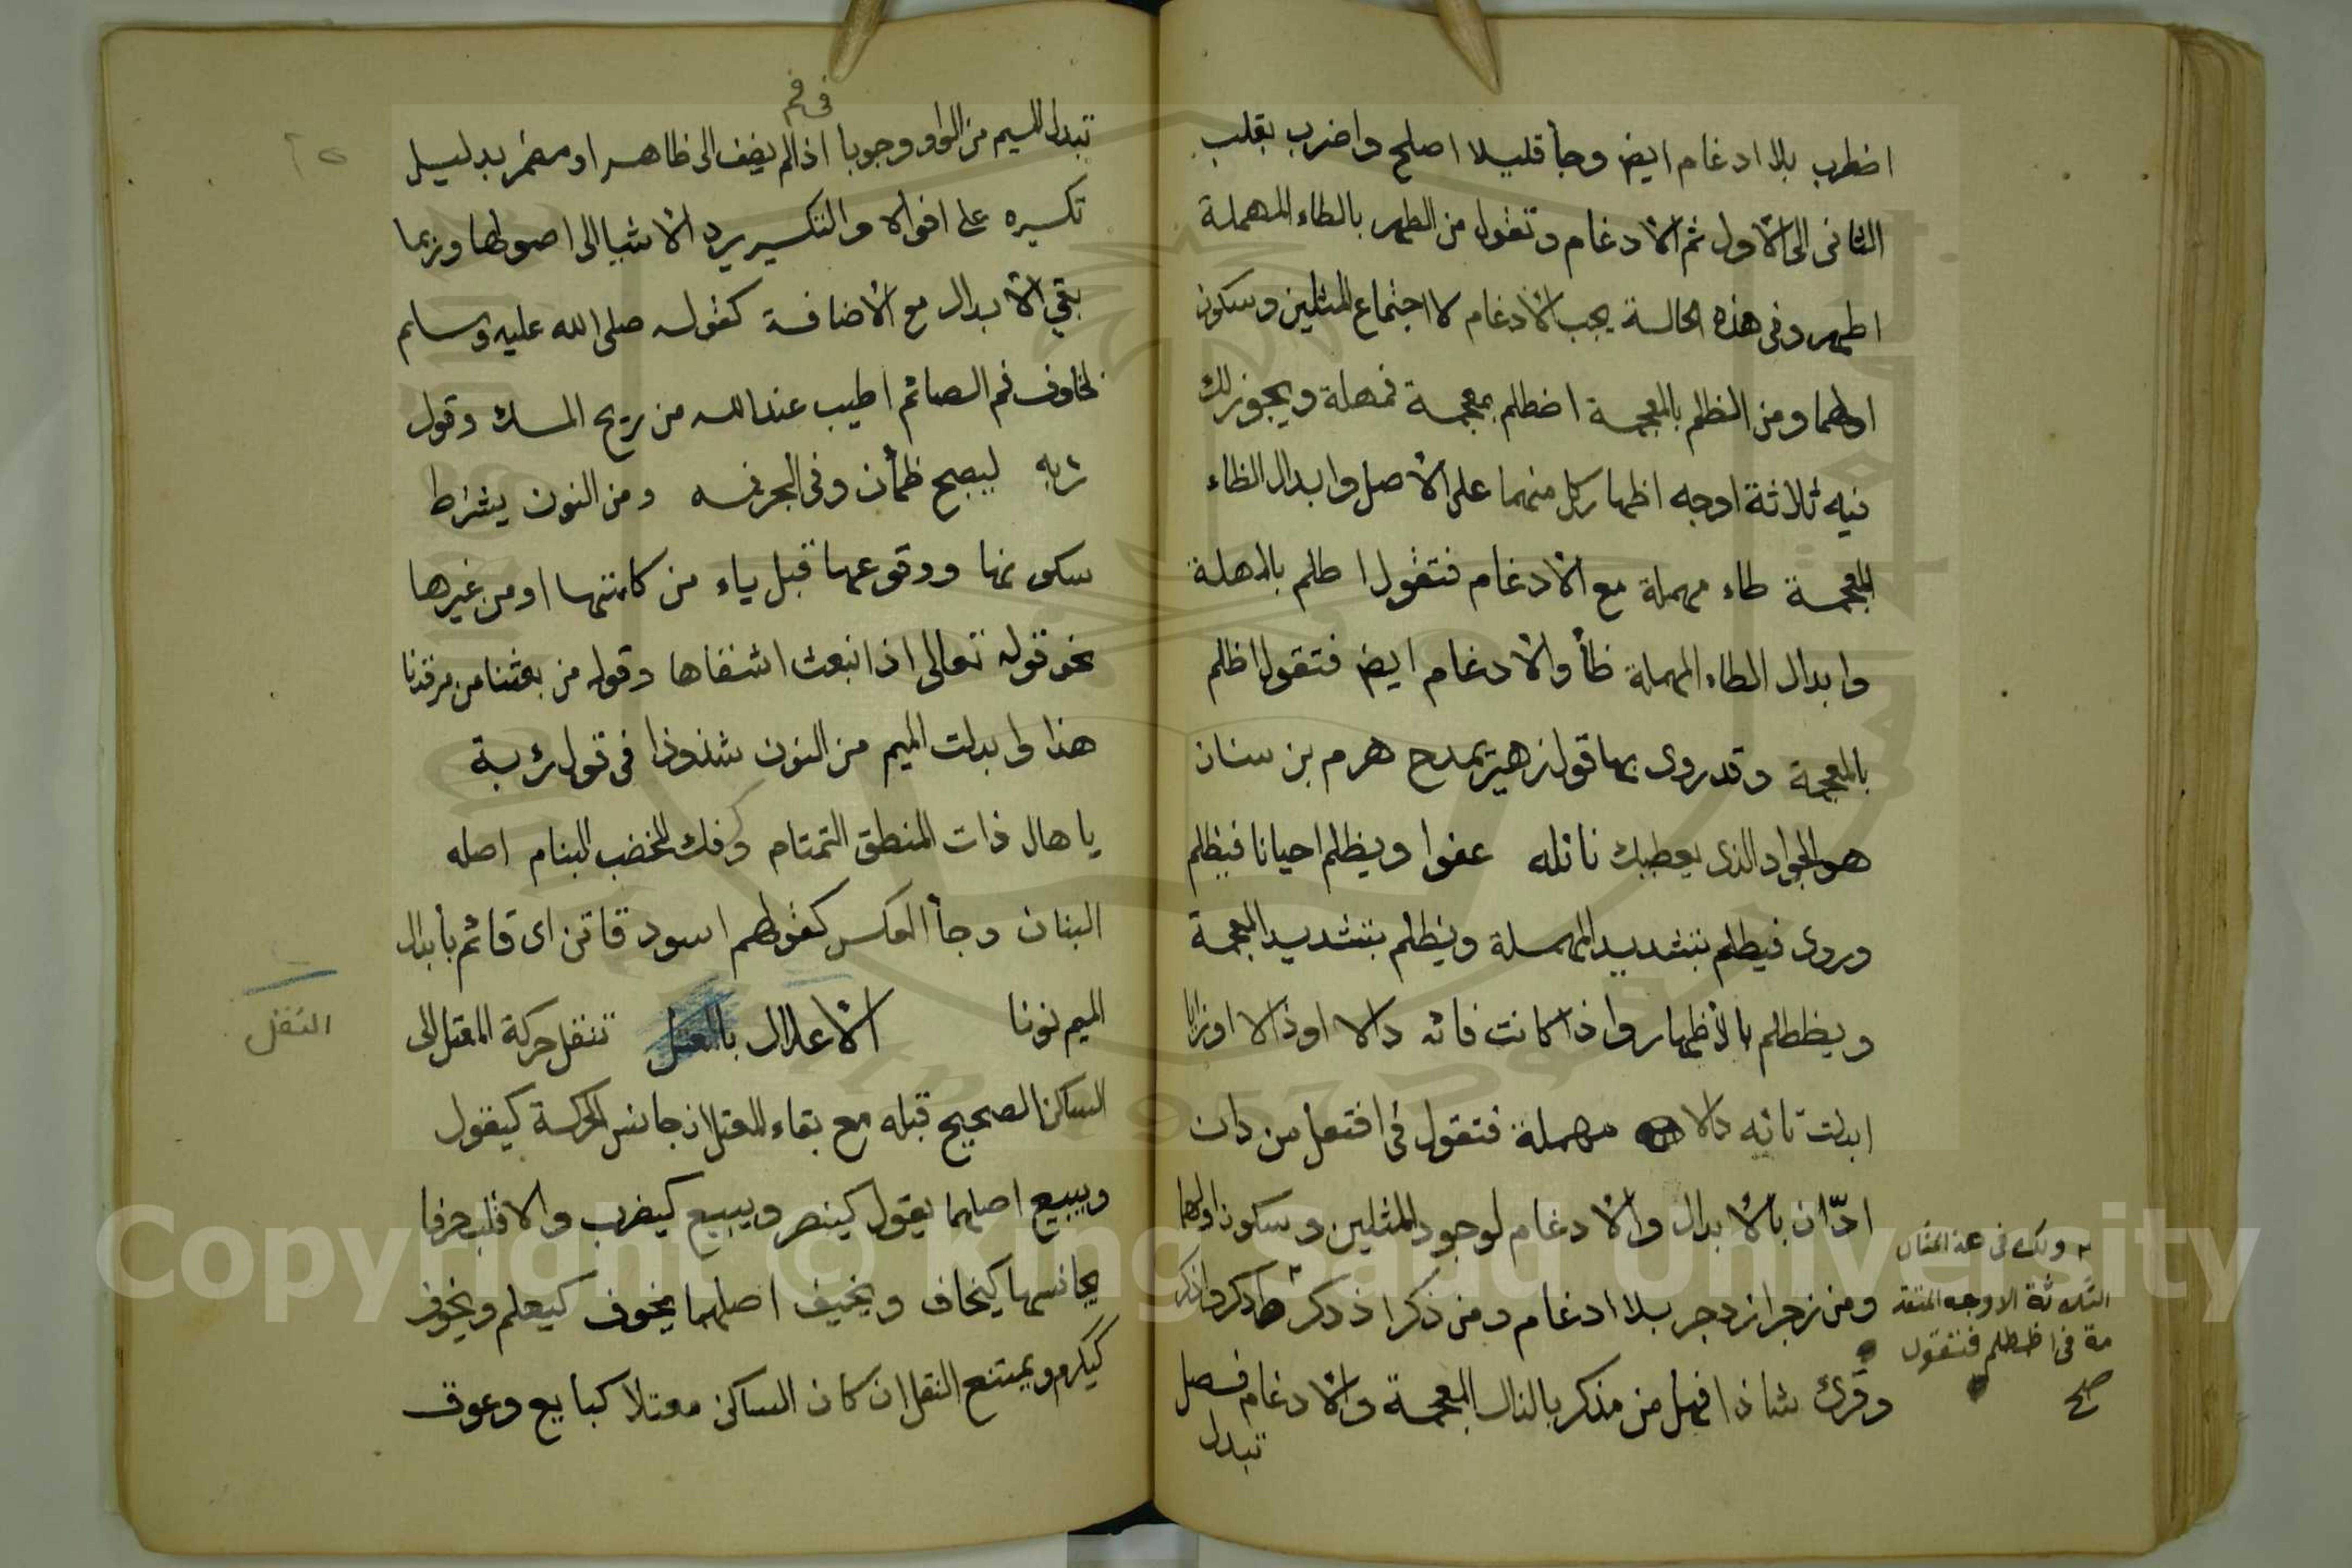 اضطرب بلا ادغام ايض وجأ قليلا اصلح واضرب بقلب
الثانى الى الاول ثم الادغام وتقول من الطهر بالطاء المهملة
اطهر وفى هذه الحالة يجب الادغام لاجتماع المثلين وسكون
اولهما ومن الظلم بالمعجمة اضطلم بمعجمة فمهملة ويجوز لك
فيه ثلاثة اوجه اظهار كل منهما على الاصل وابدال الظاء
المعجمة طاء مهملة مع الادغام فتقول اطلم بالمهملة
وابدال الطاء المهملة ظأ والادغام ايض فتقول اظلم
بالمعجمة وقد روى بها قول زهير يمدح هرم بن سنان
هو الجواد الذى يعطيك نائله عفوا ويظلم احيانا فيظلم
وروى فيطلم بتشديد المهملة ويظلم بتشديد المعجمة
ويظطلم بالأظهار واذا كانت فائه دالا او ذالا او زايا
ابدلت تائه دالا مهملة فتقول فى افتعل من دان
ادّان بالابدال والادغام لوجود المثلين وسكون اولهما
ومن زجر ازدجر بلا ادغام ومن ذكر اذدكر وادكر واذكر
وقرئ شاذا فهل من مذكر بالذال المعجمة والادغام فصل
تبدل
ولك فى هذا المثال
الثلاثة الاوجه المتقد
مة فى اظطلم فتقول
صح
فى فم
تبدل الميم من الواو وجوبا اذا لم يضف الى ظاهر او مضمر بدليل
تكسيره على افواه والتكسير يرد الاشيا الى اصولها وربما
بقي الابدال مع الاضافة كقوله صلى الله عليه وسلم
لخلوف فم الصائم اطيب عند الله من ريح المسك وقول
رؤبه ليصبح ظمأن وفى البحر فمه ومن النون بشرط
سكونها ووقوعها قبل باء من كلمتها او من غيرها
نحو قوله تعالى اذ انبعث اشقاها وقوله من بعثنا من مرقدنا
هذا وابدلت الميم من النون شذوذا فى قول رؤبة
يا هال ذات المنطق التمتام وكفك المخضب البنام اصله
البنان وجأ العكس كقولهم اسود قاتن اى قاتم بأبدال
الميم نونا الاعلال بالنقل تنقل حركة المعتل الى
الساكن الصحيح قبله مع بقاء المعتل ان جانس الحركة كيقول
ويبيع اصلهما يقول كينصر ويبيع كيضرب والا قلب حرفا
يجانسها كيخاف ويخيف اصلهما يخوف كيعلم ويخوف
كيكرم ويمتنع النقل ان كان الساكن معتلا كبايع وعوق
النقل
٢٥
Copyright © King Saud University